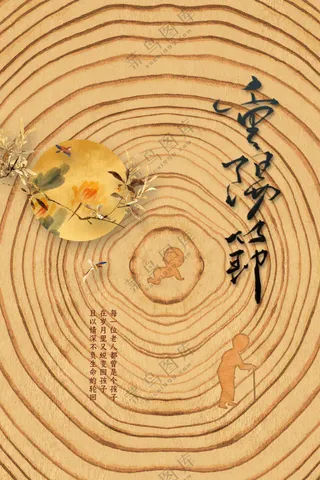 重阳节
每一位老人都曾是个孩子
在岁月里又蜕变回孩子
且以情深不负生命的轮回
菜鸟图库